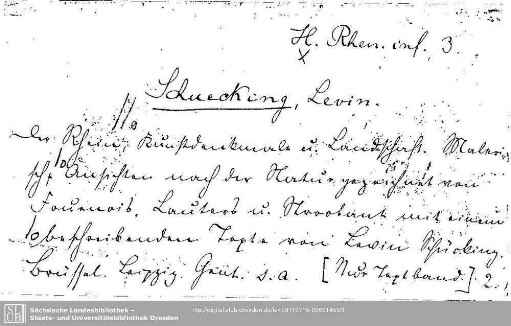 H. Rhen. inf. 3.
x
Schuecking, Levin.
Der Rhein, Kunstdenkmale u. Landschaft. Maleri-
sche Ansichten nach der Natur gezeichnet von
Fourmois, Lauters u. Stroobant mit einem
beschreibenden Texte von Levin Schücking.
Brüssel. Leipzig. Gent. s. a. [Nur Textband.] 2.
Sächsische Landesbibliothek –
Staats- und Universitätsbibliothek Dresden